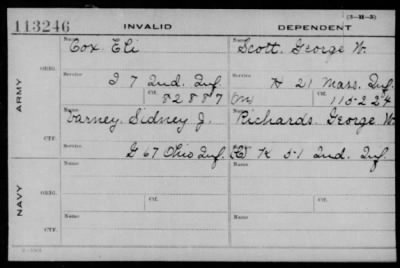 113246 INVALID DEPENDENT (3-313)
Name Cox, Eli Name Scott, George W.
ARMY
ORIG. Service I 7 Ind. Inf. Service H 21 Mass. Inf.
Ctf. 82887 (M) Ctf. 115224
Name Varney, Sidney J. Name Richards, George W.
CTF. Service G 67 Ohio Inf. Service K 51 Ind. Inf.
NAVY
Name Name
ORIG. Service Ctf. Service Ctf.
Name Name
CTF. Service Service